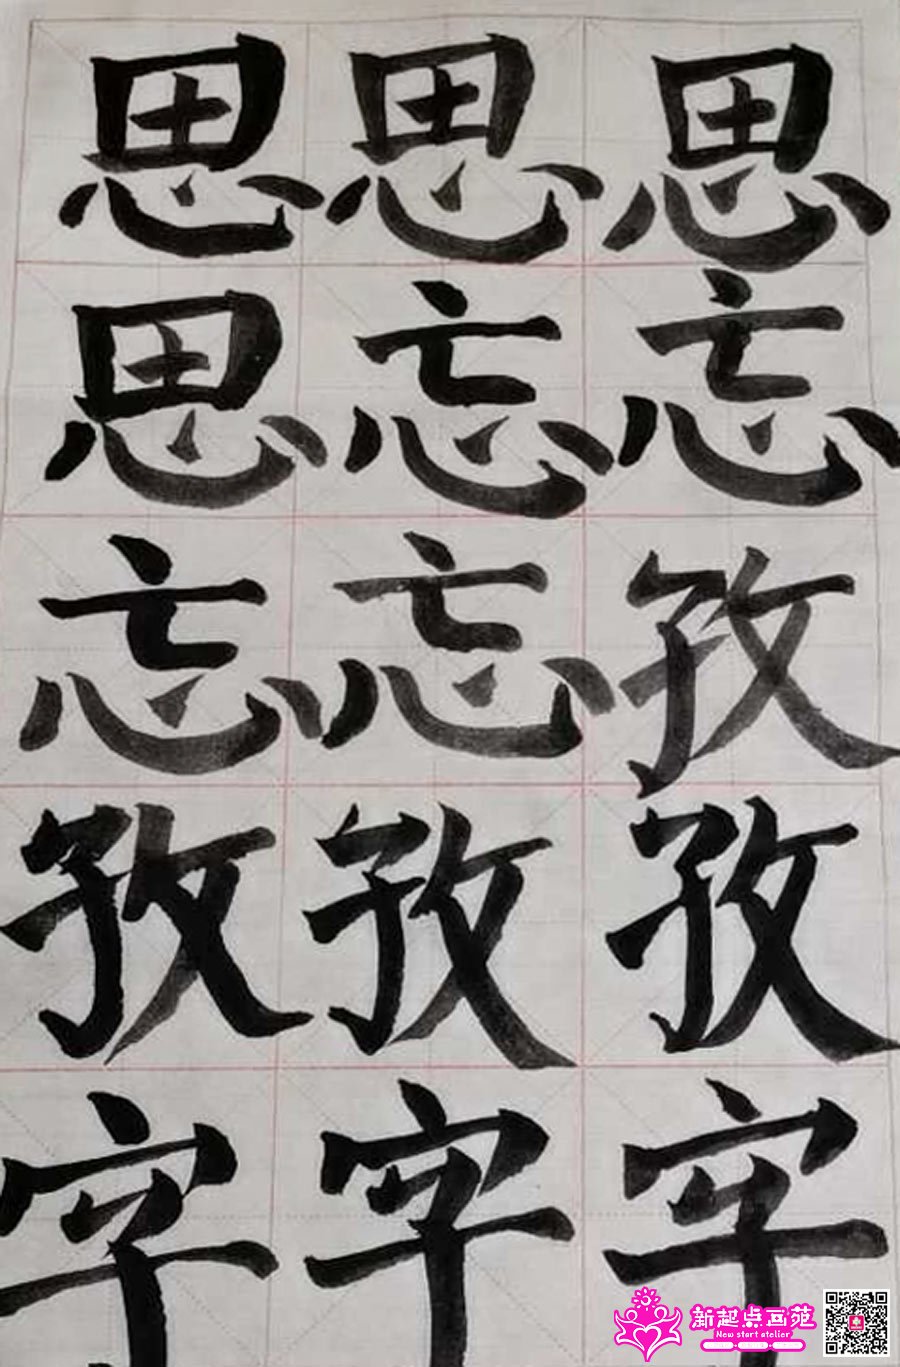 思思思
思忘忘
忘忘孜
孜孜孜
字字字
新起点画苑
New start atelier